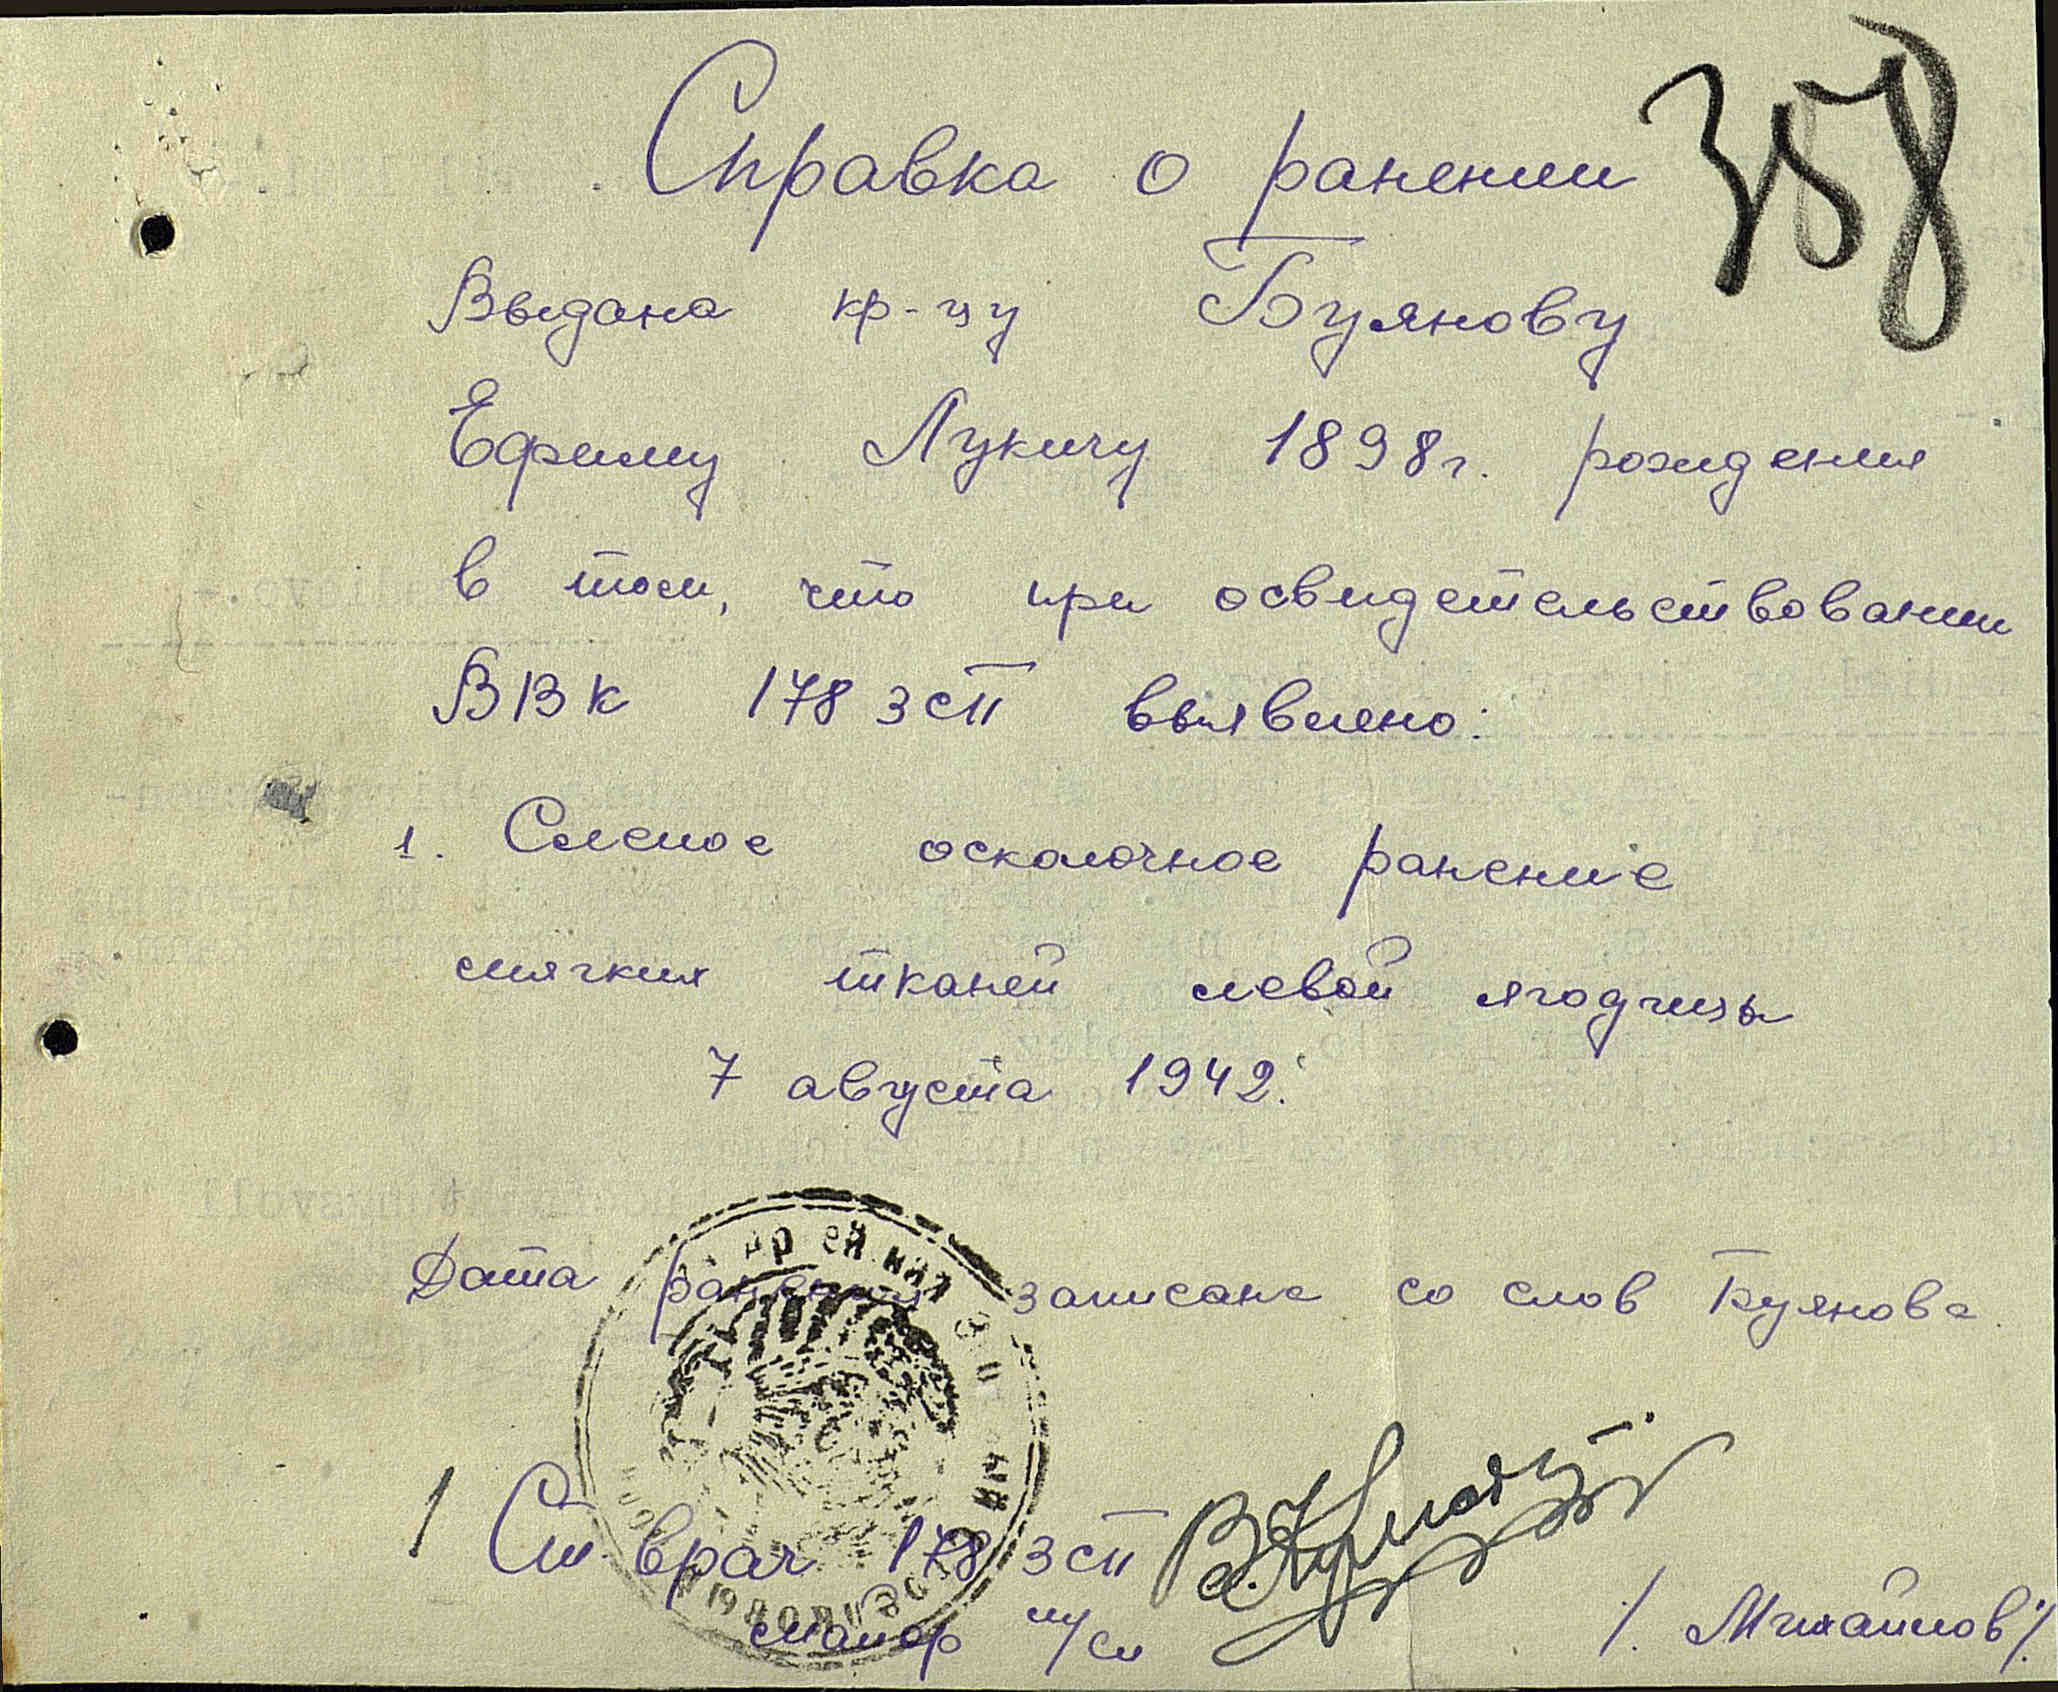 358
Справка о ранении
Выдана кр-цу Буянову
Ефиму Лукичу 1898г. рождения
в том, что при освидетельствовании
ВВК 178 зсп выявлено:
1. Слепое осколочное ранение
мягких тканей левой ягодицы
7 августа 1942.
Дата ранения записана со слов Буянова
Ст. врач 178 зсп
майор м/сл /. Михайлов/.